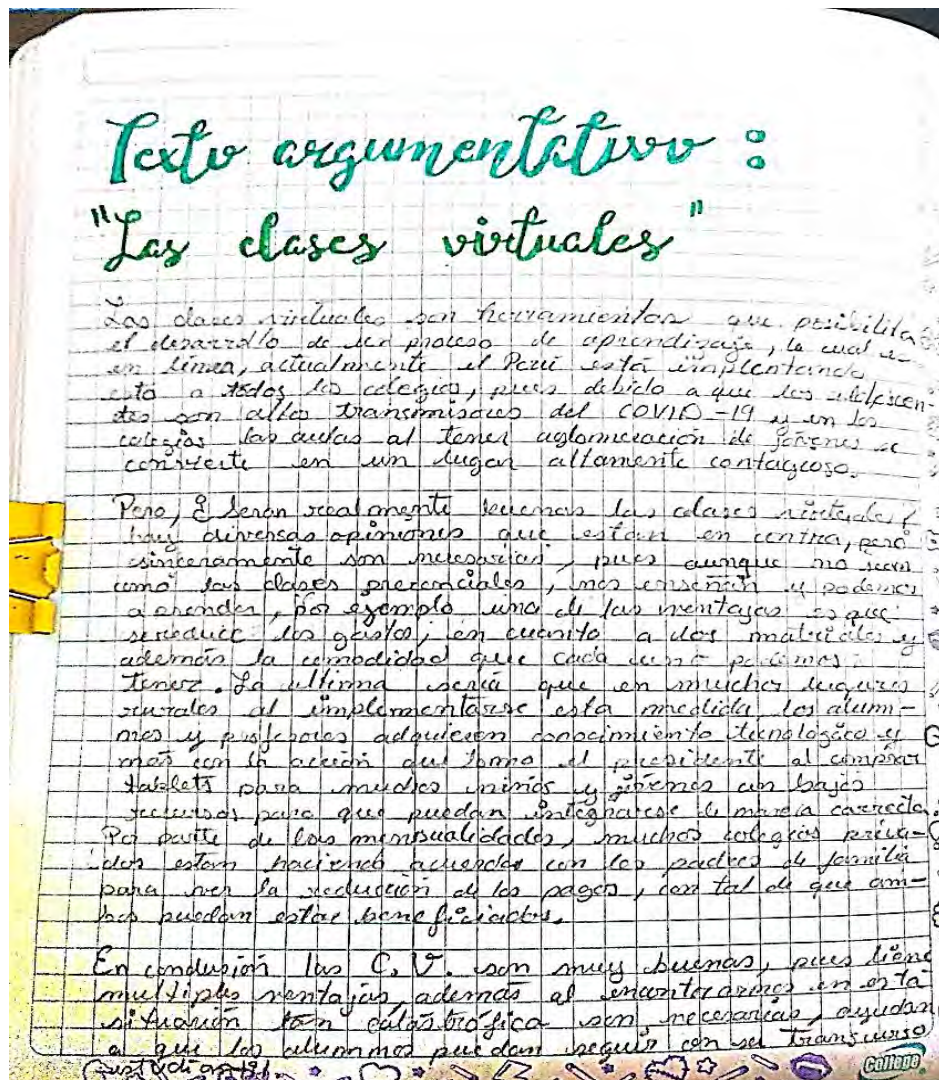 Texto argumentativo :
"Las clases virtuales"
Las clases virtuales son herramientas que posibilita
el desarrollo de un proceso de aprendizaje, la cual es
en línea, actualmente el Perú está implentando
esto a todos los colegios, pues debido a que los adolescen
tes son altos transmisores del COVID-19 y en los
colegios las aulas al tener aglomeración de jóvenes se
convierte en un lugar altamente contagioso.
Pero, ¿Seran realmente buenas las clases virtuales?
hay diversas opiniones que estan en contra, pero
sinceramente son necesarias, pues aunque no sean
como las clases presenciales, nos enseñan y podemos
aprender, por ejemplo una de las ventajas es que
se reduce los gastos, en cuanto a los materiales y
además la comodidad que cada uno podemos
tener. La ultima seria que en muchos lugares
rurales al implementarse esta medida los alum-
nos y profesores adquieren conocimiento tecnológico y
más con la acción que tomo el presidente al comprar
tablets para muchos niños y jóvenes con bajos
recursos para que puedan integrarse de manera correcta.
Por parte de las mensualidades, muchos colegios priva-
dos estan haciendo acuerdos con los padres de familia
para ver la reducción de los pagos, con tal de que am-
bos puedan estar beneficiados.
En conclusión las C.V. son muy buenas, pues tiene
multiples ventajas, además al encontrarnos en esta
situación tan catastrófica son necesarias, ayudan
a que los alumnos puedan seguir con su transcurso
estudiantil
College